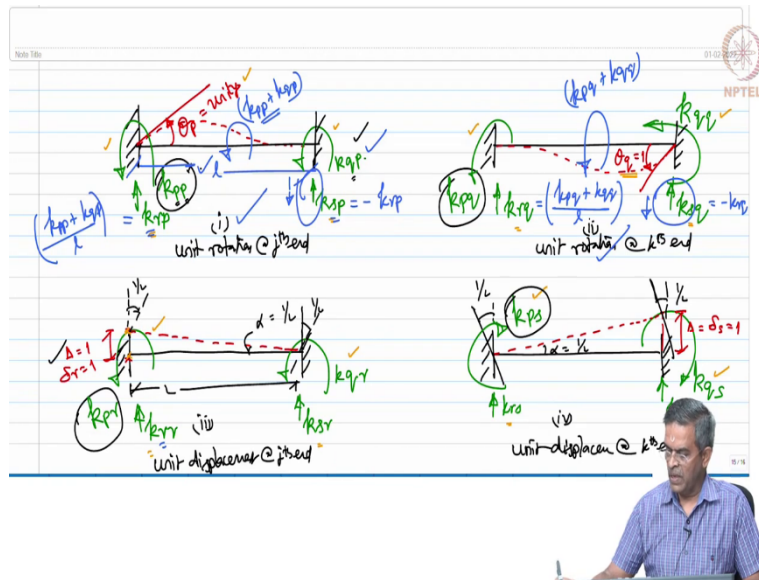 Note Title
01-02-
NPTEL
θp = unity
(kpp + kqp)
kpp
l
kqp
(kpp + kqp) / l = krp
ksp = -krp
(i)
unit rotation @ jth end
(kpq + kqq)
kqq
θq = 1
kpq
krq = (kpq + kqq) / l
ksq = -krq
(ii)
unit rotation @ kth end
1/L
α = 1/L
1/L
Δ = 1
δr = 1
kpr
kqr
L
krr
ksr
(iii)
unit displacement @ jth end
1/L
kps
1/L
Δ = δs = 1
α = 1/L
kqs
krs
(iv)
unit displacen @ kth e
15 / 16